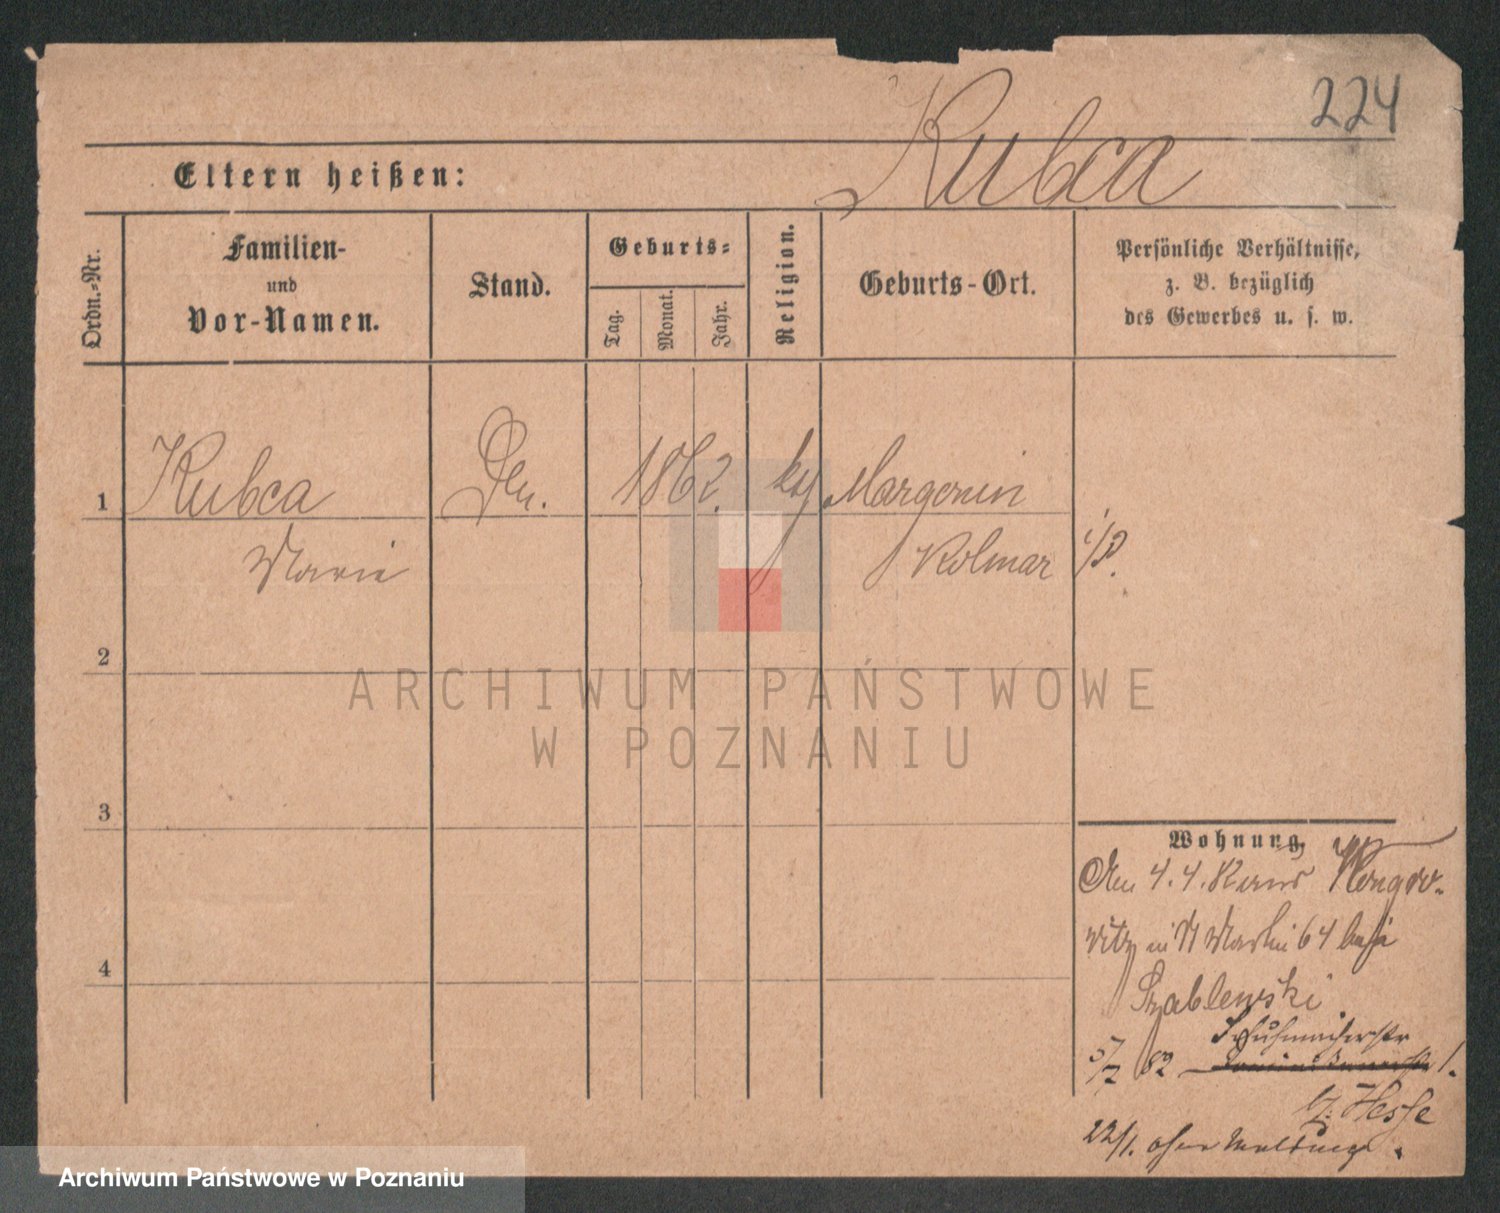 224
Kubca
Eltern heißen:
Ordn.-Nr.
Familien-
und
Vor-Namen.
Stand.
Geburts-
Tag.
Monat.
Jahr.
Religion.
Geburts-Ort.
Persönliche Verhältnisse,
z. B. bezüglich
des Gewerbes u. s. w.
1 Kubca 1862. Margonin
Marie Kolmar i/P.
2
3
4
ARCHIWUM PAŃSTWOWE
W POZNANIU
Wohnung.
4. 4. Wongro-
witz Martin 64
Szablewski
Schuhmacherstr
5/7 82 1.
b/. Hesse
22/1. ohne Meldung.
Archiwum Państwowe w Poznaniu